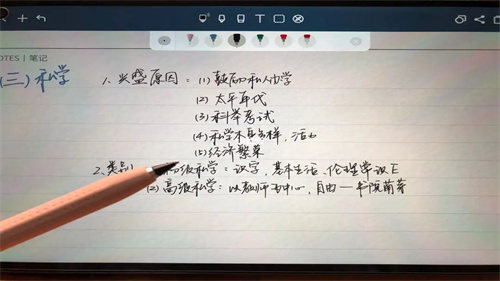 NOTES | 笔记
(三) 私学
1、兴盛原因：(1) 鼓励私人办学
(2) 太平年代
(3) 科举考试
(4) 私学本身多样，活
(5) 经济繁荣
2、类
初级私学：识字，基本生活、伦理常识
(2) 高级私学：以教师为中心，自由—书院萌芽